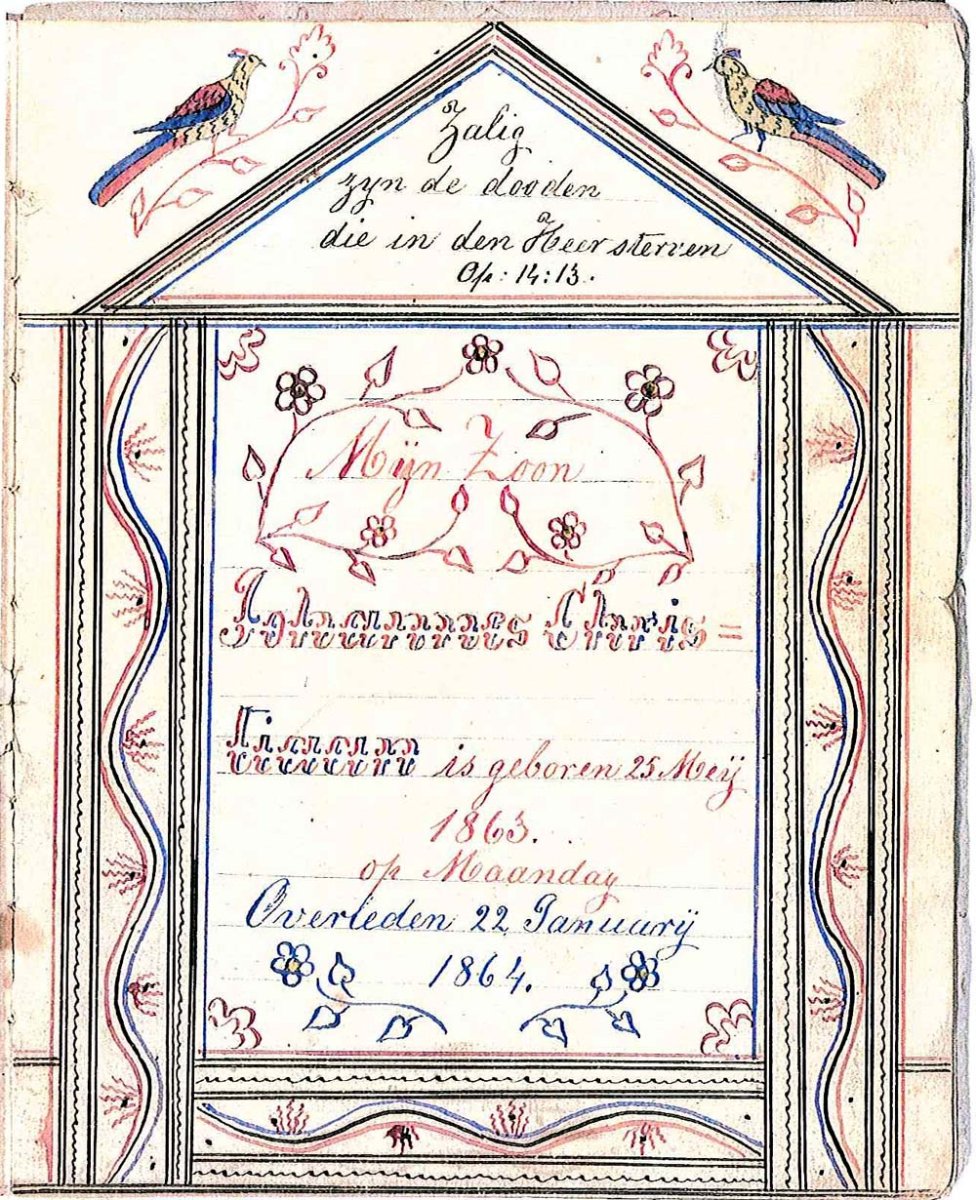 Zalig
zyn de dooden
die in den Heer sterven
Op: 14:13.
Mijn Zoon
Johannes Chris=
is geboren 25 Meÿ
1863.
op Maanday
Overleden 22 Januarÿ
1864.